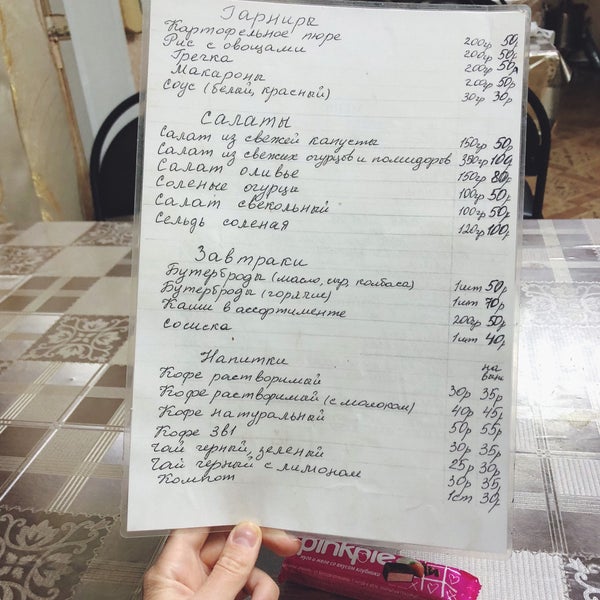 Гарниры
Картофельное пюре 200гр 50р
Рис с овощами 200гр 50р
Гречка 200гр 50р
Макароны 200гр 50р
Соус (белый, красный) 30гр 30р
Салаты
Салат из свежей капусты 150гр 50р
Салат из свежих огурцов и помидоров 350гр 100р
Салат оливье 150гр 80р
Соленые огурцы 100гр 50р
Салат свекольный 100гр 50р
Сельдь соленая 120гр 100р
Завтраки
Бутерброды (масло, сыр, колбаса) 1шт 50р
Бутерброды (горячие) 1шт 70р
Каши в ассортименте 200гр 50р
Сосиска 1шт 40р
Напитки на вынос
Кофе растворимый 30р 35р
Кофе растворимый (с молоком) 40р 45р
Кофе натуральный 50р 55р
Кофе 3в1 30р 35р
Чай черный, зеленый 25р 30р
Чай черный с лимоном 30р 35р
Компот 1ст 30р
pinkpie